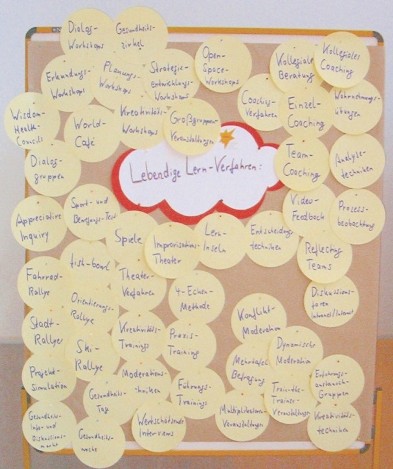 Dialog-
Workshops
Gesundheits-
zirkel
Erkundungs-
Workshops
Planungs-
Workshops
Strategie-
entwicklungs-
Workshops
Open-
Space-
Workshops
Kollegiale
Beratung
Kollegiales
Coaching
Wisdom-
Health-
Councils
World-
Café
Kreativitäts-
Workshops
Großgruppen-
Veranstaltungen
Coaching-
Verfahren
Einzel-
Coaching
Wahrnehmungs-
übungen
Dialog-
gruppen
Lebendige Lern-Verfahren:
Team-
Coaching
Analyse-
techniken
Appreciative
Inquiry
Sport- und
Bewegungs-Test
Spiele
Improvisations-
Theater
Lern-
Inseln
Entscheidungs-
techniken
Video-
Feedback
Prozess-
beobachtung
Reflecting
Teams
Fahrrad-
Rallye
Fish-bowl
Orientierungs-
Rallye
Theater-
Verfahren
4-Ecken-
Methode
Diskussions-
foren
Internet/Intranet
Stadt-
Rallye
Ski-
Rallye
Kreativitäts-
Trainings
Praxis-
Training
Konflikt-
Moderation
Dynamische
Moderation
Projekt-
Simulation
Gesundheits-
Tag
Moderations-
techniken
Führungs-
Trainings
Befragung
Train-the-
Trainer-
Veranstaltungen
Erfahrungs-
austausch-
Gruppen
Gesundheits-
Infor- und
Diskussions-
markt
Gesundheits-
woche
Wertschätzende
Interviews
Multiplikatoren-
Veranstaltungen
Kreativitäts-
techniken